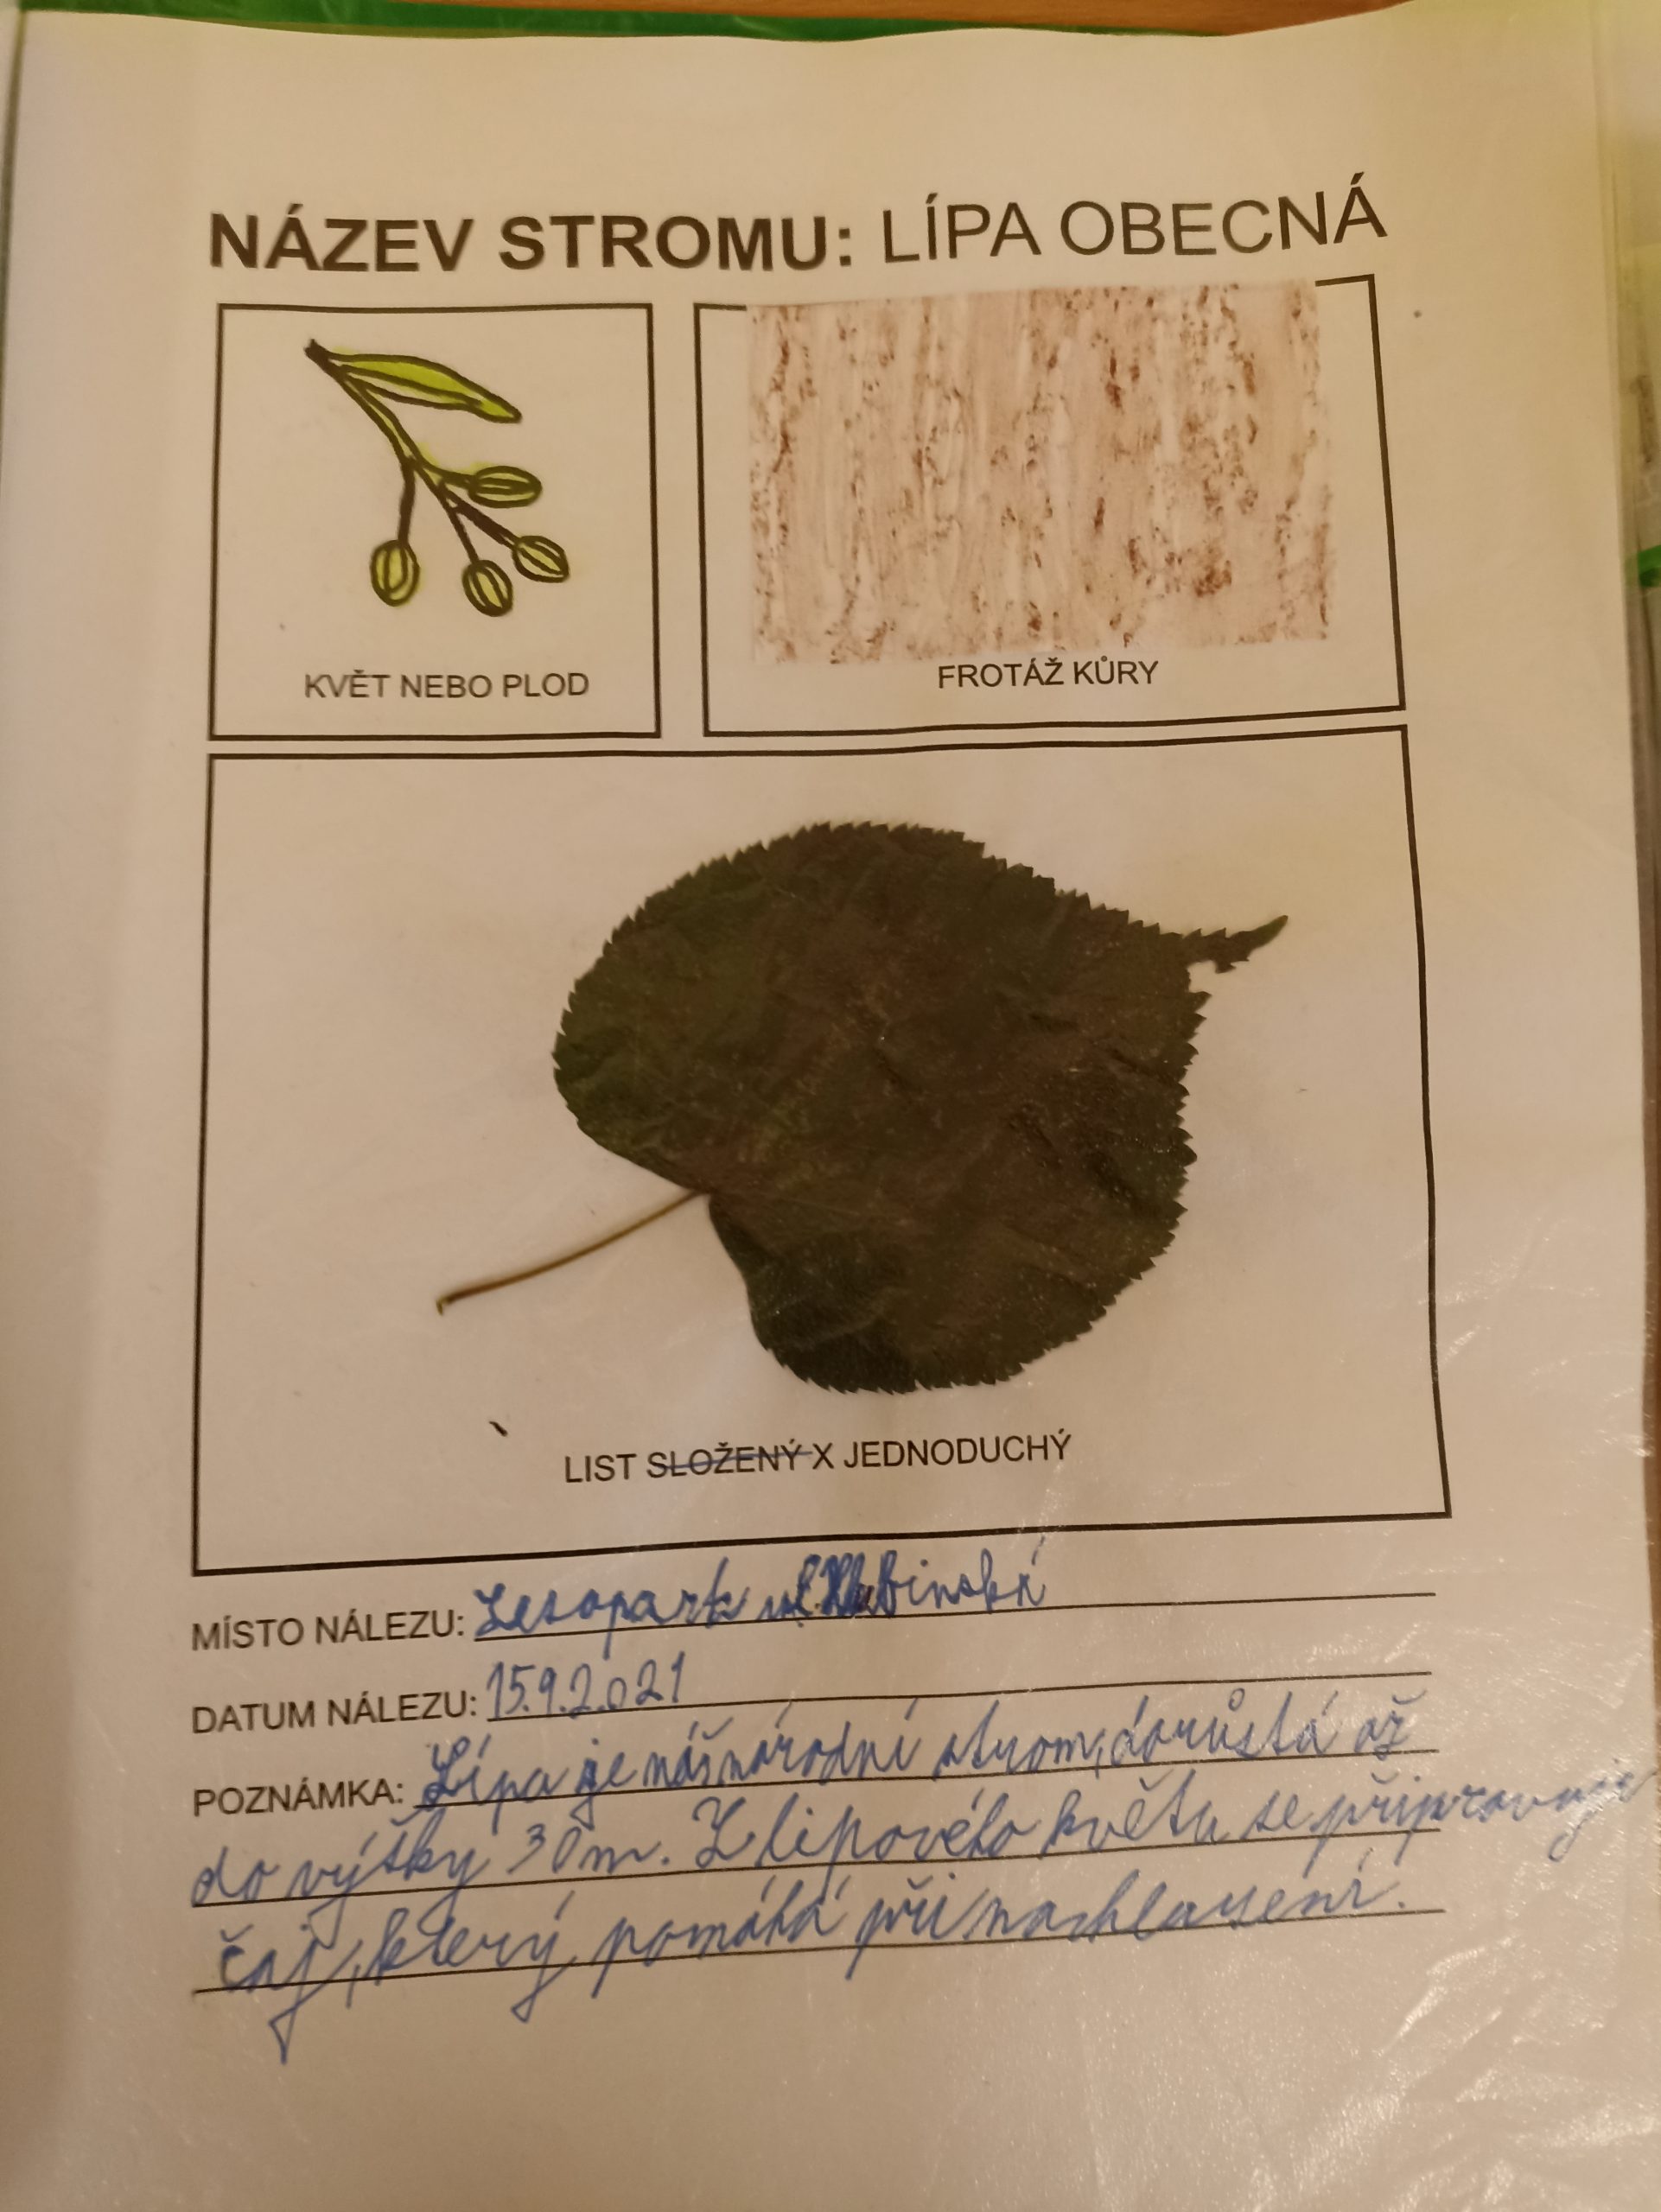 NÁZEV STROMU: LÍPA OBECNÁ
KVĚT NEBO PLOD
FROTÁŽ KŮRY
LIST SLOŽENÝ X JEDNODUCHÝ
MÍSTO NÁLEZU: Lesopark ul.
DATUM NÁLEZU: 15.9.2021
POZNÁMKA: Lípa je náš národní strom, dorůstá až
do výšky 30m. Z lipového květu se připravuje
čaj, který pomáhá při nachlazení.